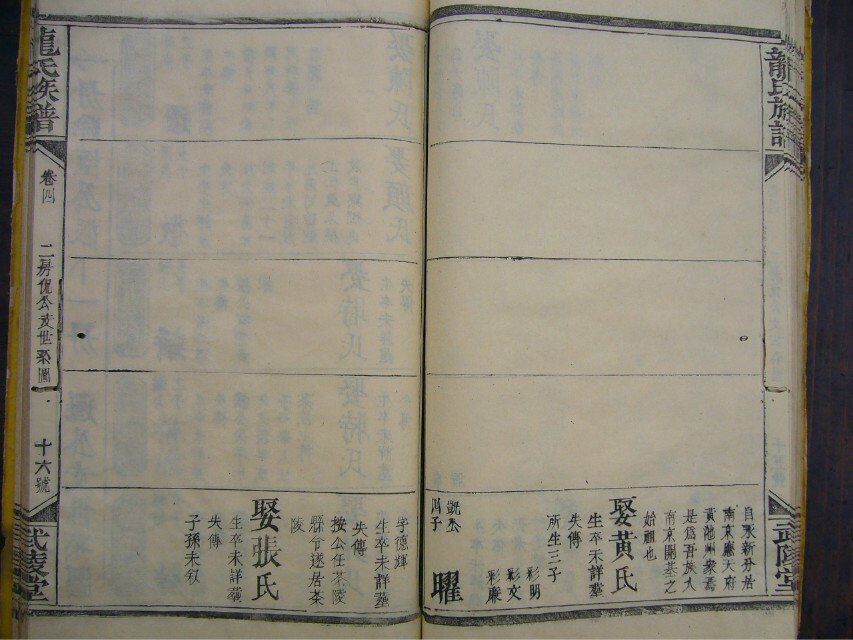 龍氏族譜
武陵堂
自永新分居
南京應天府
黃池州家焉
是為吾族大
南京開基之
始祖也
娶黃氏
生卒未詳葬
失傳
所生三子
彩明
彩文
彩廉
凱公
四子
曜
字德輝
生卒未詳葬
失傳
按公任茶陵
縣令遂居茶
陵
娶張氏
生卒未詳葬
失傳
子孫未敘
龍氏族譜
卷四
二房侃公支世系圖
十六號
武陵堂